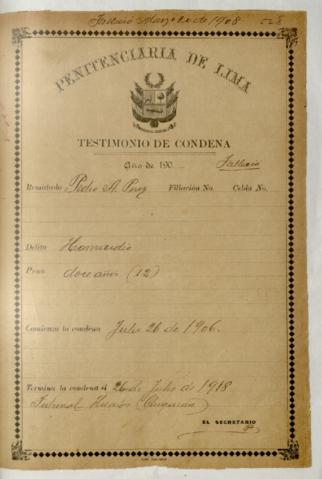 Falleció Marzo 20 de 1908 528
PENITENCIARIA DE LIMA
TESTIMONIO DE CONDENA
Año de 190 Falleció
Rematado Pedro A. Perez Filiación No. Celda No.
Delito Homicidio
Pena doce años (12)
Comienza la condena Julio 26 de 1906.
Termina la condena el 26 de Julio de 1918
Tribunal
EL SECRETARIO